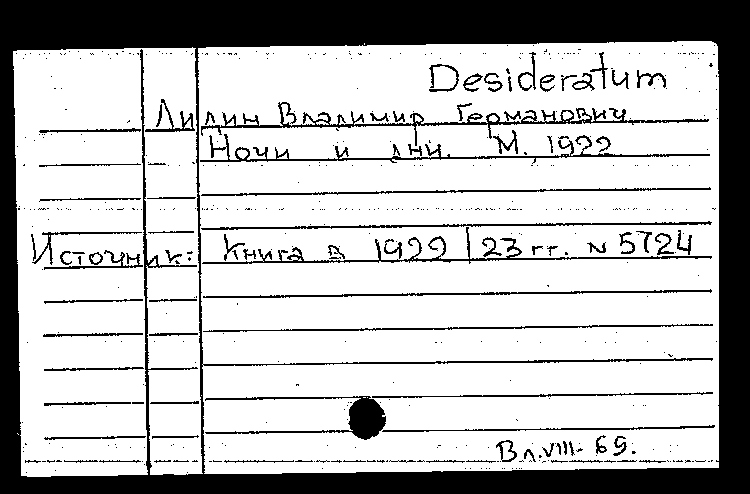 Desideratum
Лидин Владимир Германович
Ночи и дни. М., 1922
Источник: Книга в 1922/23 гг. N 5724
Вл. VIII-69.